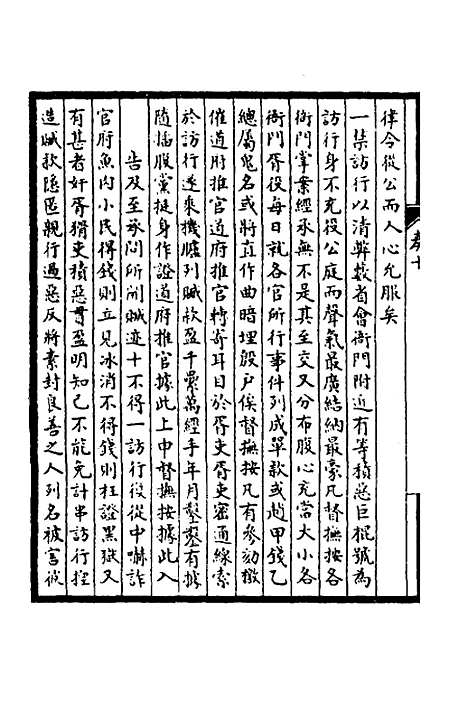 律令從公而人心允服矣
一禁訪行以清弊藪省會衙門附近有等積惡巨棍號為
訪行身不充役公庭而聲氣最廣結納最豪凡督撫按各
衙門掌案經承無不是其至交又分布腹心充當大小各
衙門胥役每日就各官所行事件列成單款或趙甲錢乙
總屬鬼名或將直作曲暗埋殷戶俟督撫按凡有參劾檄
催道府推官道府推官轉寄耳目於胥吏胥吏密通線索
於訪行遂乘機臚列贓款盈千累萬經手年月鑿鑿有據
隨插股黨挺身作證道府推官據此上申督撫按據此入
告及至承問所開贓迹十不得一訪行役從中嚇詐
官府魚肉小民得錢則立見冰消不得錢則枉證黑獄又
有甚者奸胥猾吏積惡貫盈明知己不能免計串訪行捏
造贓款隱匿親行過惡反將素封良善之人列名被害彼
卷十